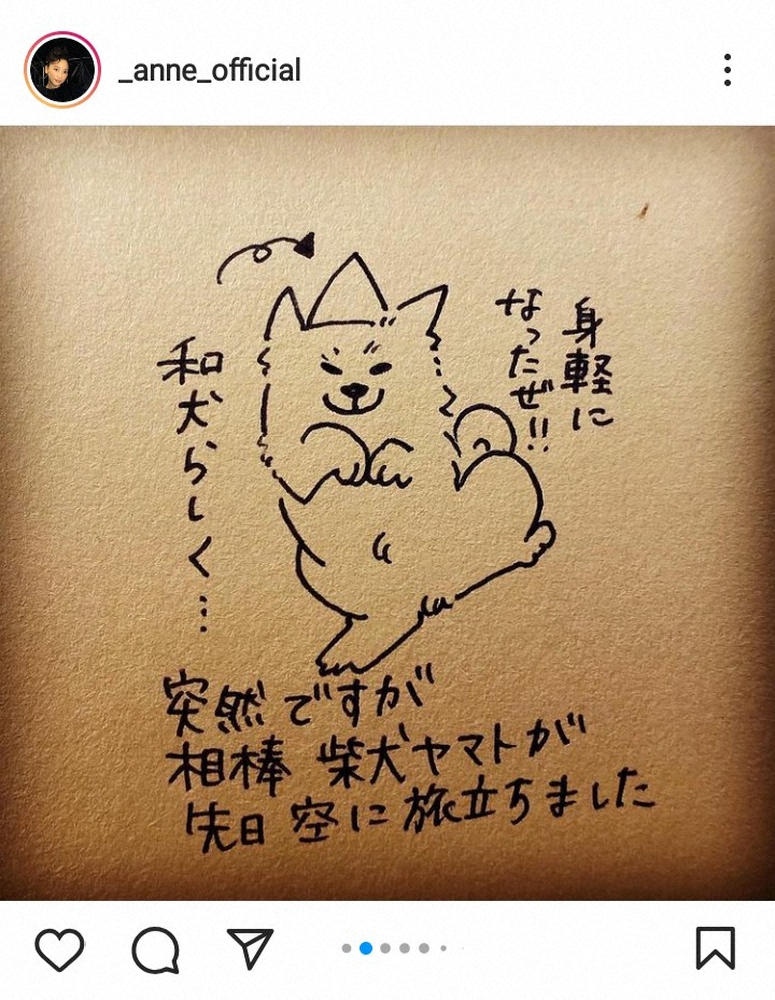 _anne_official
身軽に
なったぜ!!
和犬らしく…
突然ですが
相棒 柴犬ヤマトが
先日 空に旅立ちました